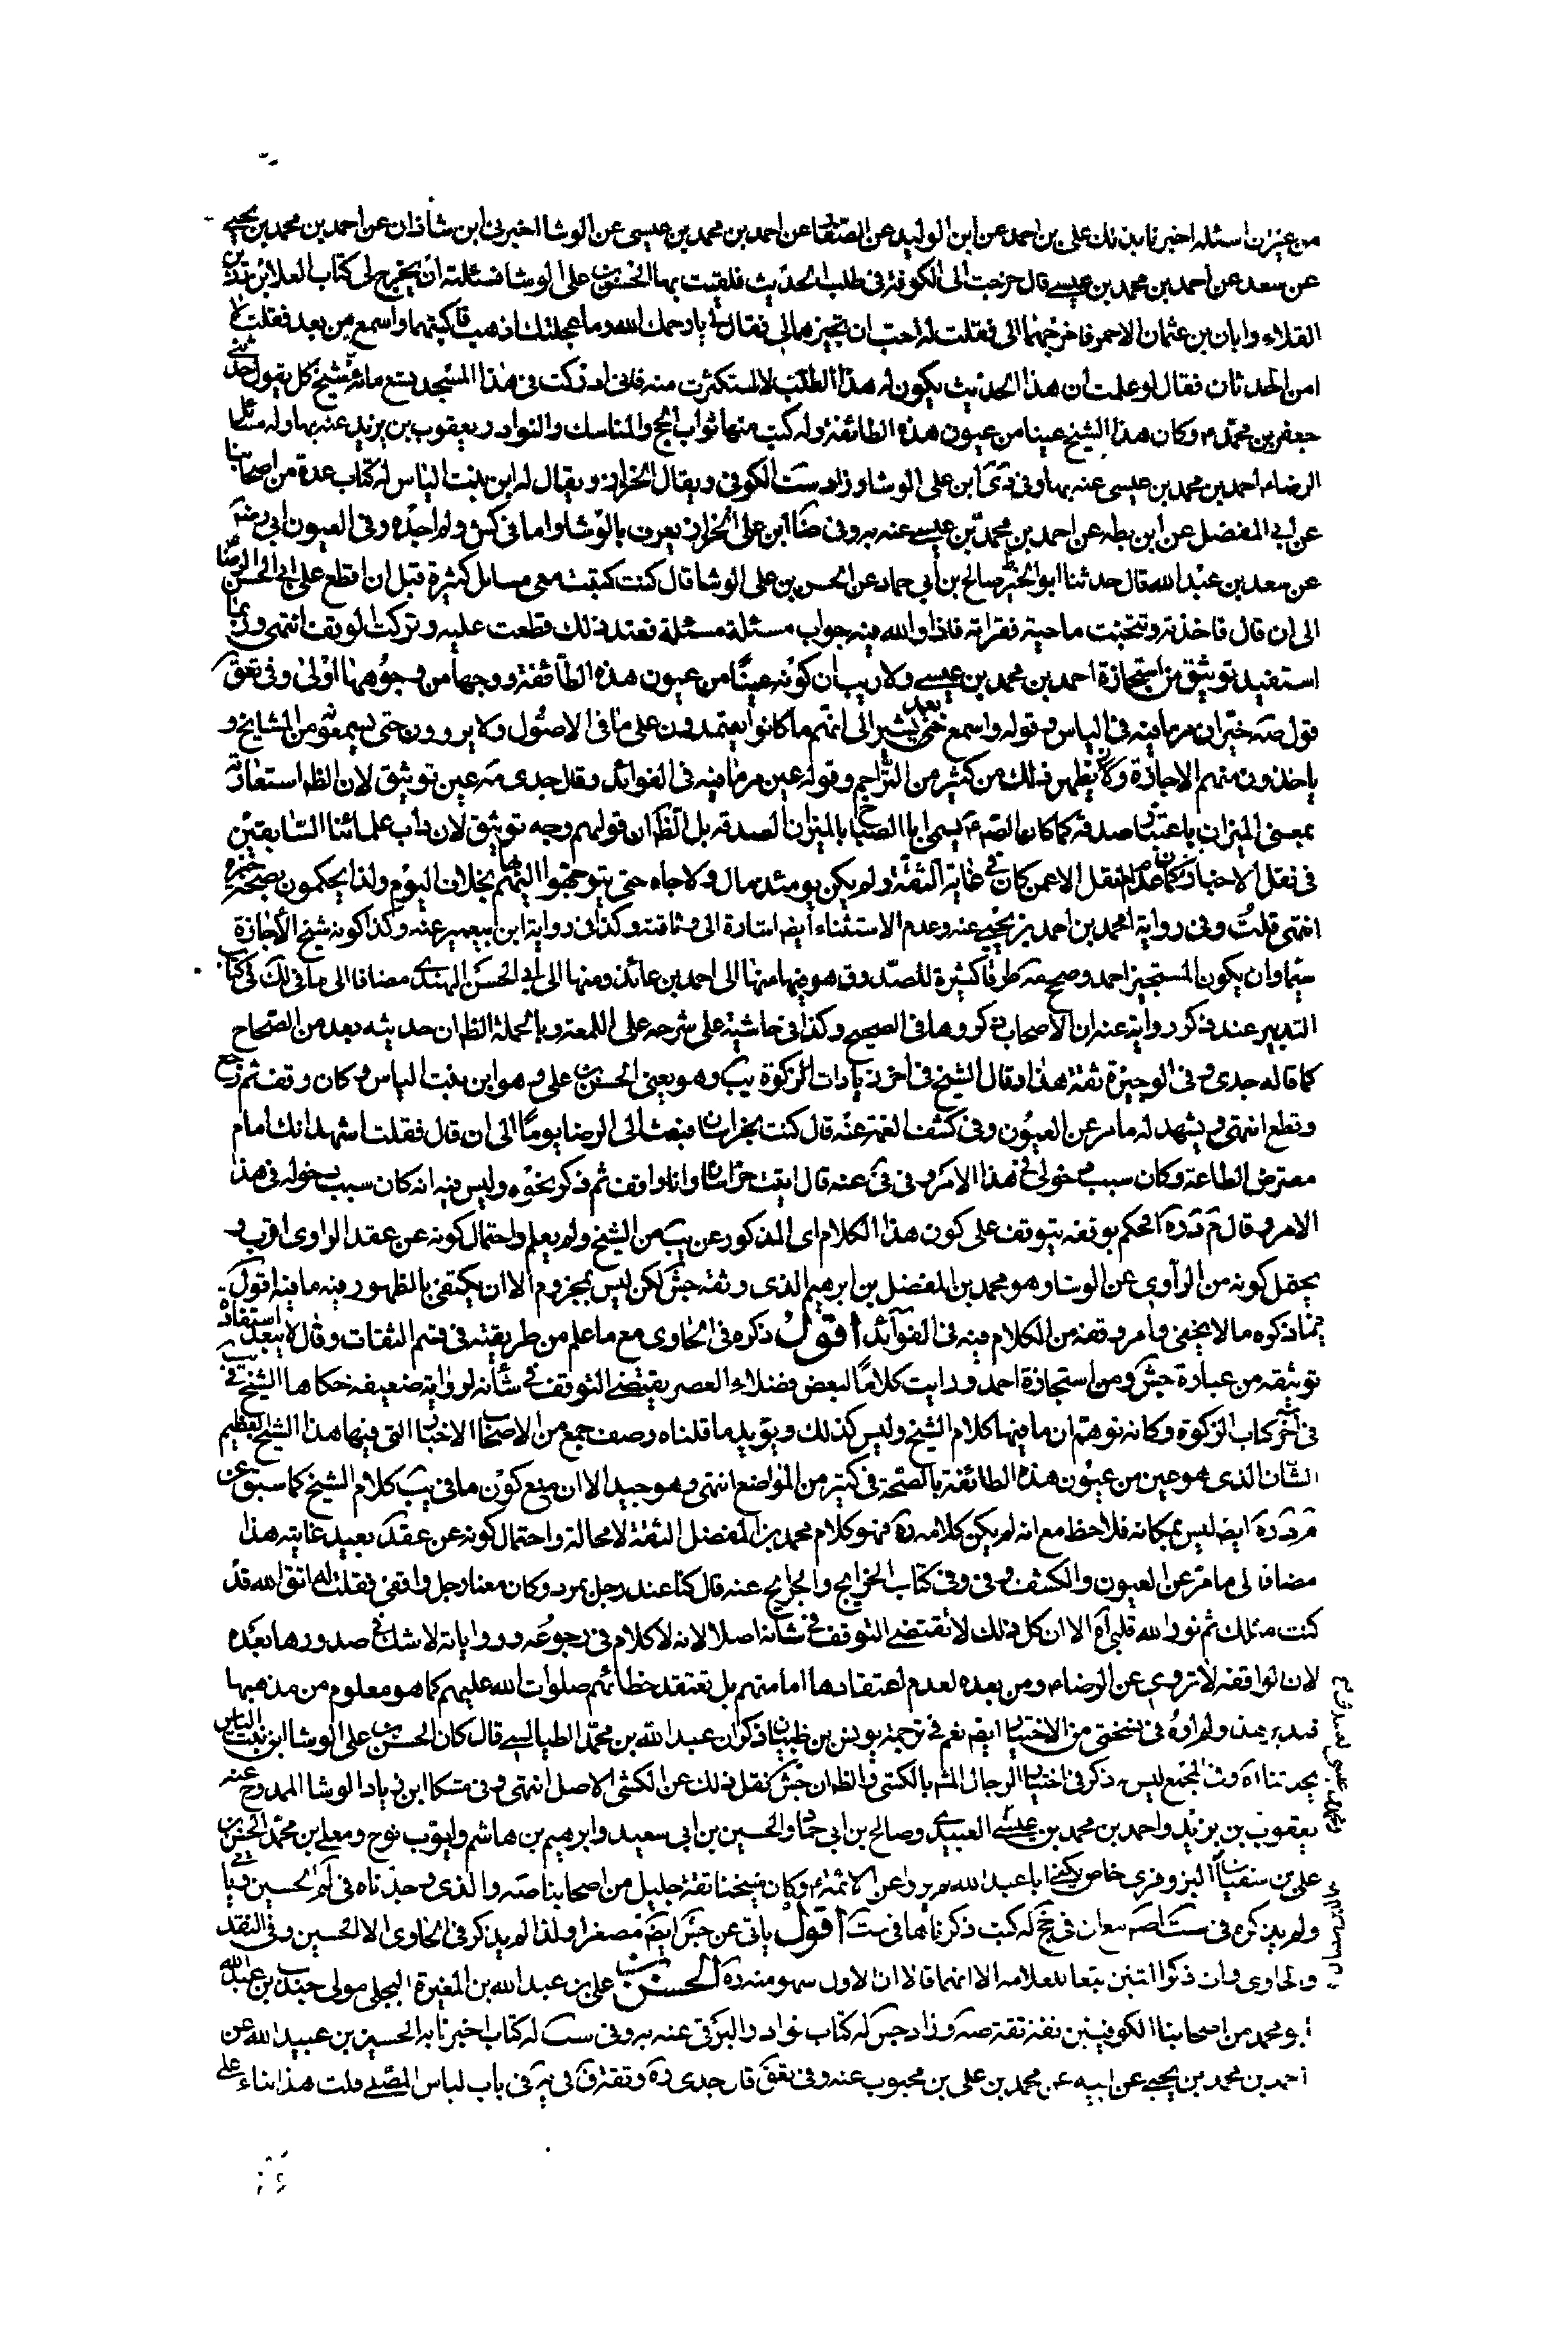 من غير ان اسئله اخبرنا بذلك على بن احمد عن ابن الوليد عن الصفار عن احمد بن محمد بن عيسى عن الوشا اخبرنى ابن شاذان عن احمد بن محمد بن يحيى
عن سعد عن احمد بن محمد بن عيسى قال خرجت الى الكوفة فى طلب الحديث فلقيت بها الحسن بن على الوشا فسئلته ان يخرج لى كتاب العلا بن رزين
القلاء وابان بن عثمان الاحمر فاخرجهما الى فقلت له احب ان تجيزهما لى فقال لى يا رحمك الله وما عجلتك اذهب فاكتبهما واسمع من بعد فقلت لا
امن الحدثان فقال لو علمت ان هذا الحديث يكون له هذا الطلب لاستكثرت منه فانى ادركت فى هذا المسجد تسع مائة شيخ كل يقول حدثنى
جعفر بن محمد ع وكان هذا الشيخ عينا من عيون هذه الطائفة وله كتب منها ثواب الحج والمناسك والنوادر يعقوب بن يزيد عنه بها وله مسائل
الرضا ع احمد بن محمد بن عيسى عنه بها وفى ابن على الوشا وزاد ست الكوفى ويقال الخزاز ويقال له ابن بنت الياس له كتاب عدة من اصحابنا
عن ابى المفضل عن ابن بطه عن احمد بن محمد بن عيسى عنه به وفى ضا ابن على الخزاز يعرف بالوشا واما فى كش ولم اجده وفى العيون ابى رضه
عن سعد بن عبد الله قال حدثنا ابو الخير صالح بن ابى حماد عن الحسن بن على الوشا قال كنت كتبت معى مسائل كثيرة قبل ان اقطع على ابى الحسن الرضا
الى ان قال فاخذته وتنحيت ناحية فقراته فاذا والله فيه جواب مسئلة مسئلة فعند ذلك قطعت عليه وتركت الوقف انتهى وربما
استفيد توثيقه من استجازة احمد بن محمد بن عيسى ولا ريب ان كونه عينا من عيون هذه الطائفة ووجها من وجوهها اولى وفى تعق
قوله خير ان مر ما فيه فى الياس وقوله واسمع من بعد يشير الى انهم ما كانوا يعتمدون على ما فى الاصول ولا يروون حتى يسمعوه من المشايخ و
ياخذون منهم الاجازة وكان يظهر ذلك من كثير من التراجم وقوله عين مر ما فيه فى الفوائد وقال جدى ره عين توثيق لان الظه استعارته
بمعنى الميزان باعتبار صدقه كما كان الصه ع يسمى ابا الصباح بالميزان لصدقه بل الظ ان قولهم وجه توثيق لان داب علمائنا السابقين
فى نقل الاخبار كان عدم النقل الا عمن كان فى غاية الثقة ولم يكن يومئذ مال ولا جاه حتى يتوجهوا اليهم بخلاف اليوم ولذا يحكمون بصحة خبره
انتهى قلت وفى رواية محمد بن احمد بن يحيى عنه وعدم الاستثناء ايضا اشارة الى وثاقته وكذا فى رواية ابن ابى عمير عنه وكذا كونه شيخ الاجازة
سيما وان يكون المستجيز احمد وصحح مه طرقا كثيرة للصدوق هو فيها منها الى احمد بن عائذ ومنها الى ابى الحسن النهدى مضافا الى ما فى لك فى كتاب
التدبير عند ذكر رواية عنه ان الاصحاب ذكروها فى الصحيح وكذا فى حاشيته على شرحه على اللمعة وبالجملة الظ ان حديثه يعد من الصحاح
كما قاله جدى وفى الوجيزة ثقة هذا وقال الشيخ فى اخر زيادات الزكوة يب وهو يعنى الحسن بن على وهو ابن بنت الياس وكان وقف ثم رجع
وقطع انتهى ويشهد له ما مر عن العيون وفى كشف الغمة عنه قال كنت بخراسان فبعث الى الرضا يوما الى ان قال فقلت اشهد انك امام
مفترض الطاعة وكان سبب دخولى فى هذا الامر وفى فى عنه قال اتيت خراسان وانا واقف ثم ذكر نحوه وليس فيه انه كان سبب دخوله فى هذا
الامر وقال م د ره الحكم بوقفه يتوقف على كون هذا الكلام اى المذكور عن يب من الشيخ ولم يعلم واحتمال كونه عن عقد الراوى اقرب و
يحتمل كونه من الراوى عن الوشا وهو محمد بن المفضل بن ابرهيم الذى وثقه جش لكن ليس بمجزوم الا ان يكتفى بالظهور فيه ما فيه اقول
فيما ذكره ما لا يخفى ومر وقفه من الكلام فيه فى الفوائد اقول ذكره فى الحاوى مع ما علم من طريقته فى قسم الثقات وقال لا يبعد استفادة
توثيقه من عبارة جش ومن استجازة احمد ورايت كلاما لبعض فضلاء العصر يقتضى التوقف فى شانه لرواية ضعيفة حكاها الشيخ فى يب
فى آخر كتاب الزكوة وكانه توهم ان ما فيها كلام الشيخ وليس كذلك ويؤيد ما قلناه وصف جمع من الاصحاب الاخبار التى فيها هذا الشيخ العظيم
الشان الذى هو عين من عيون هذه الطائفة بالصحة فى كثير من المواضع انتهى وهو جيد الا ان منع كون ما فى يب كلام الشيخ كما سبق عن
م د ره ايضا ليس بمكانه فلاحظ مع انه لو لم يكن كلامه ره فهو كلام محمد بن المفضل الثقة لا محالة واحتمال كونه عن عقد بعيد غايته هذا
مضافا الى ما مر عن العيون والكشف و فى وفى كتاب الخرايج والجرايح عنه قال كنا عند رجل بمرو وكان معنا رجل واقفى فقلت له اتق الله قد
كنت مثلك ثم نور الله قلبى آه الا ان كل ذلك لا يقتضى التوقف فى شانه اصلا لانه لا كلام فى رجوعه ورواياته لا شك فى صدورها بعده
لان الواقفة لا تروى عن الرضا ع ومن بعده لعدم اعتقادها امامتهم بل تعتقد خطائهم صلوات الله عليهم كما هو معلوم من مذهبها
فتدبر هذا ولم اره فى نسختى من الاختيار ايضا نعم فى ترجمة يونس بن ظبيان ذكر ان عبد الله بن محمد الطيالسى قال كان الحسن بن على الوشا ابن بنت الياس
يحدثنا اه وفى المجمع ليس ذكر فى اختيار الرجال المشهر بالكشى والظ ان جش نقل ذلك عن الكشى الاصل انتهى وفى مشكا ابن زياد الوشا الممدوح عنه
يعقوب بن يزيد واحمد بن محمد بن عيسى العبيدى وصالح بن ابى حماد والحسين بن ابى سعيد وابرهيم بن هاشم وايوب نوح ومعلى بن محمد الحسن بن
على بن سفيان البزوفرى خاص يكنى ابا عبد الله روى عن الائمة ع وكان شيخنا ثقة جليل من اصحابنا صه والذى وجدناه فى لم الحسين وياتى
ولم يذكره فى ست اصه مع ان فى جخ له كتب ذكرناها فى ست اقول ياتى عن جش ايضا مصغرا ولذا لم يذكر فى الحاوى الا الحسين وفى النقد
و الحاوى وان ذكرا اثنين تبعا للعلامه الا انهما قالا ان الاول سهو منه ره الحسن بن على بن عبد الله بن المغيرة البجلى مولى جندب بن عبد الله
ابو محمد من اصحابنا الكوفيين ثقة ثقة صه وزاد جش له كتاب نوادر البرقى عنه به وفى ست له كتاب اخبرنا به الحسين بن عبيد الله عن
احمد بن محمد بن يحيى عن ابيه عن محمد بن على بن محبوب عنه وفى تعق قال جدى ره وثقه ق فى يه فى باب لباس المصلى قلت هذا بناء على